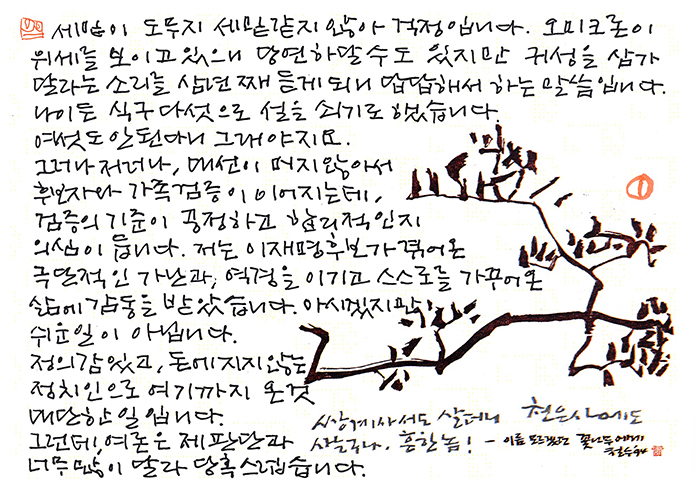 세밑이 도무지 세밑같지 않아 걱정입니다. 오미크론이
위세를 보이고 있으니 당연하달 수도 있지만 귀성을 삼가
달라는 소리를 삼년째 듣게 되니 답답해서 하는 말씀입니다.
나이든 식구 다섯으로 설을 쇠기로 했습니다.
여섯도 안된다니 그래야지요.
그러나저러나, 대선이 머지않아서
후보자와 가족검증이 이어지는데,
검증의 기준이 공정하고 합리적인지
의심이 듭니다. 저는 이재명후보가 겪어온
극단적인 가난과, 역경을 이기고 스스로를 가꾸어온
삶에 감동을 받았습니다. 아시겠지만,
쉬운일이 아닙니다.
정의감있고, 돈에 지지않는
정치인으로 여기까지 온것
대단한 일입니다.
그런데, 여론은 제 판단과
너무많이 달라 당혹스럽습니다.
살더니 천은사에도
사는구나. 흔한놈! - 이름 모르겠는 꽃나무에게